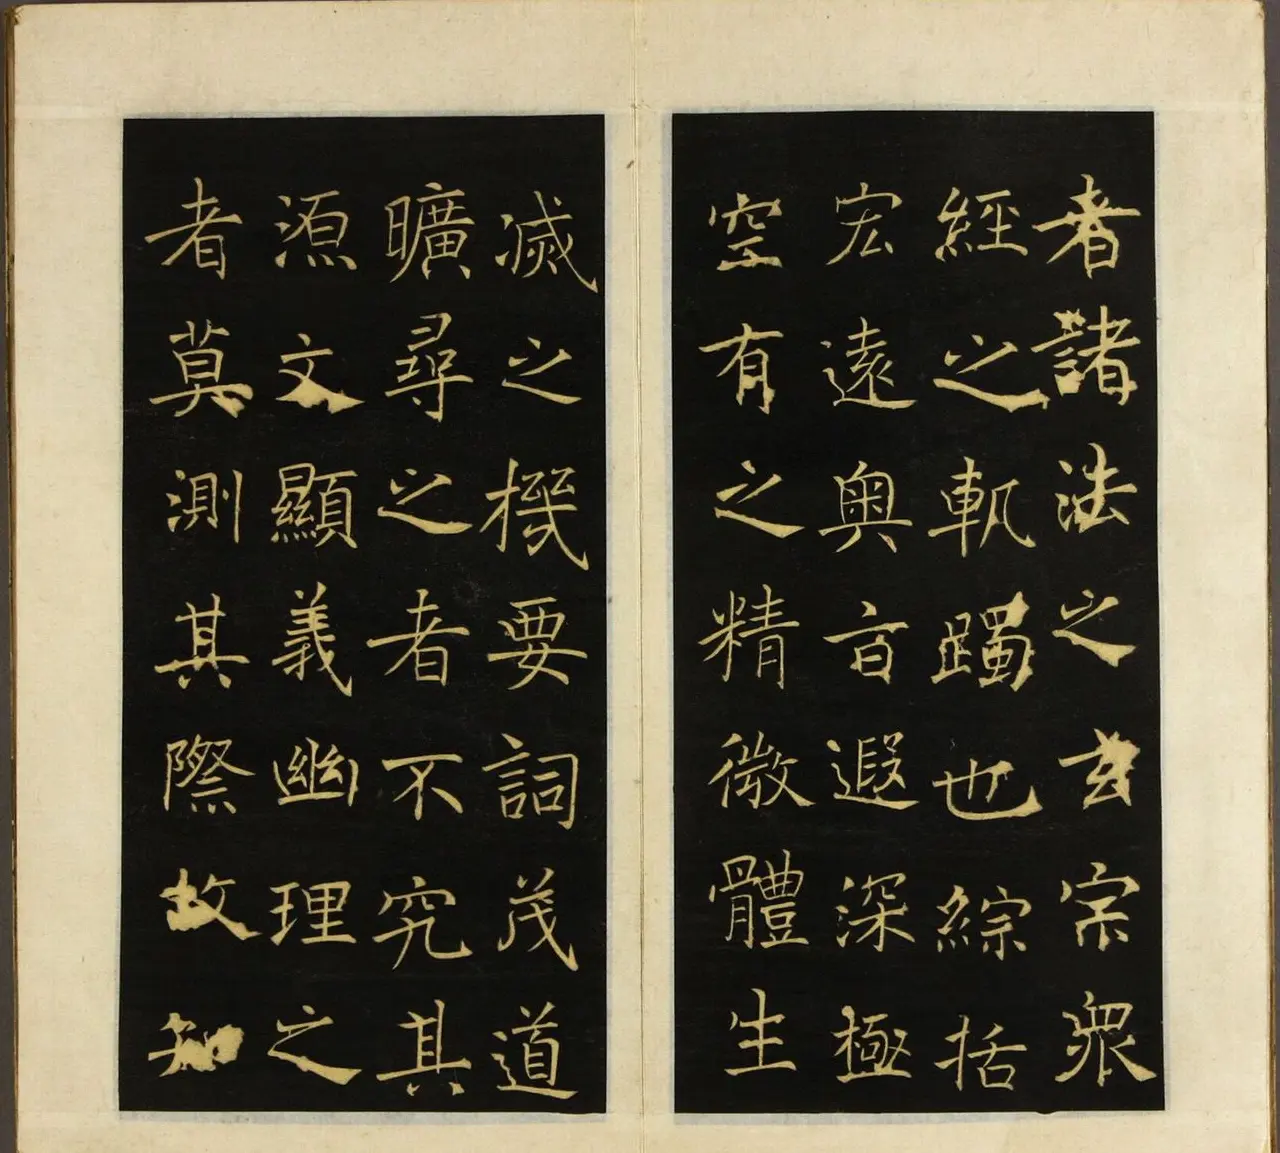 者諸法之玄宗衆
經之軌躅也綜括
宏遠奥旨遐深極
空有之精微體生
滅之機要詞茂道
曠尋之者不究其
源文顯義幽理之
者莫測其際故知